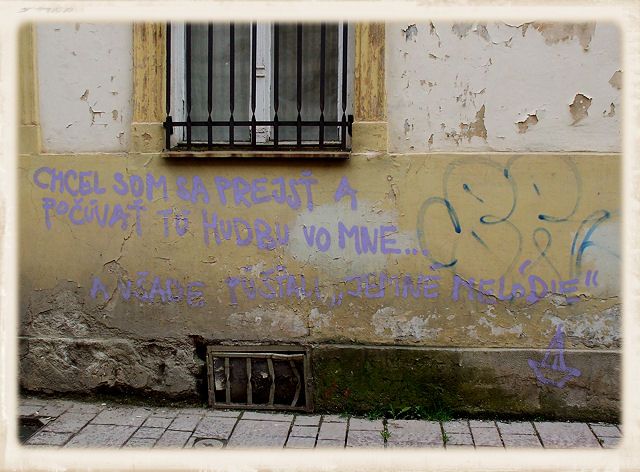 CHCEL SOM SA PREJSŤ A
POČÚVAŤ TÚ HUDBU VO MNE...
A VŠADE PÚŠŤALI „JEMNÉ MELÓDIE“